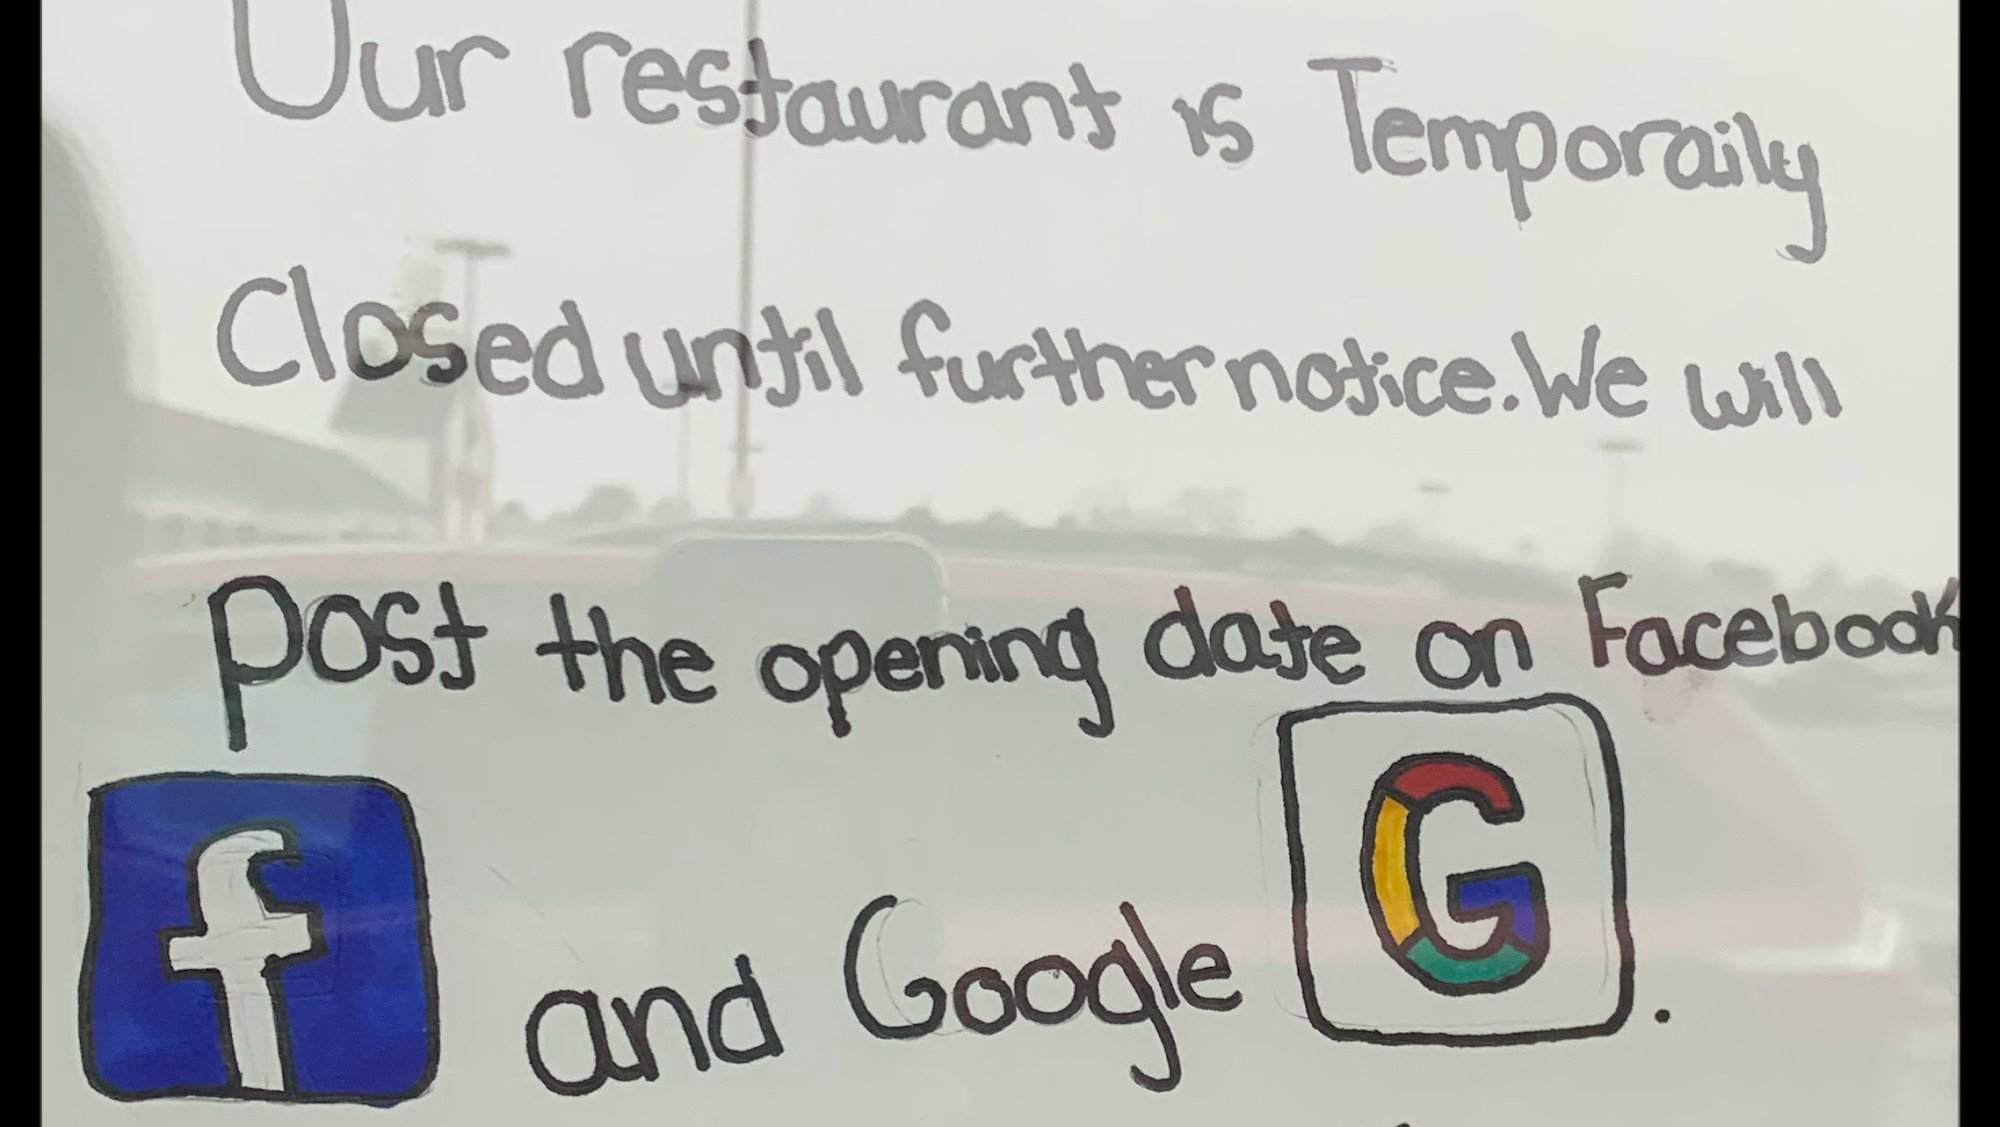 Our restaurant is Temporaily
Closed until further notice. We will
post the opening date on Facebook
f and Google G.